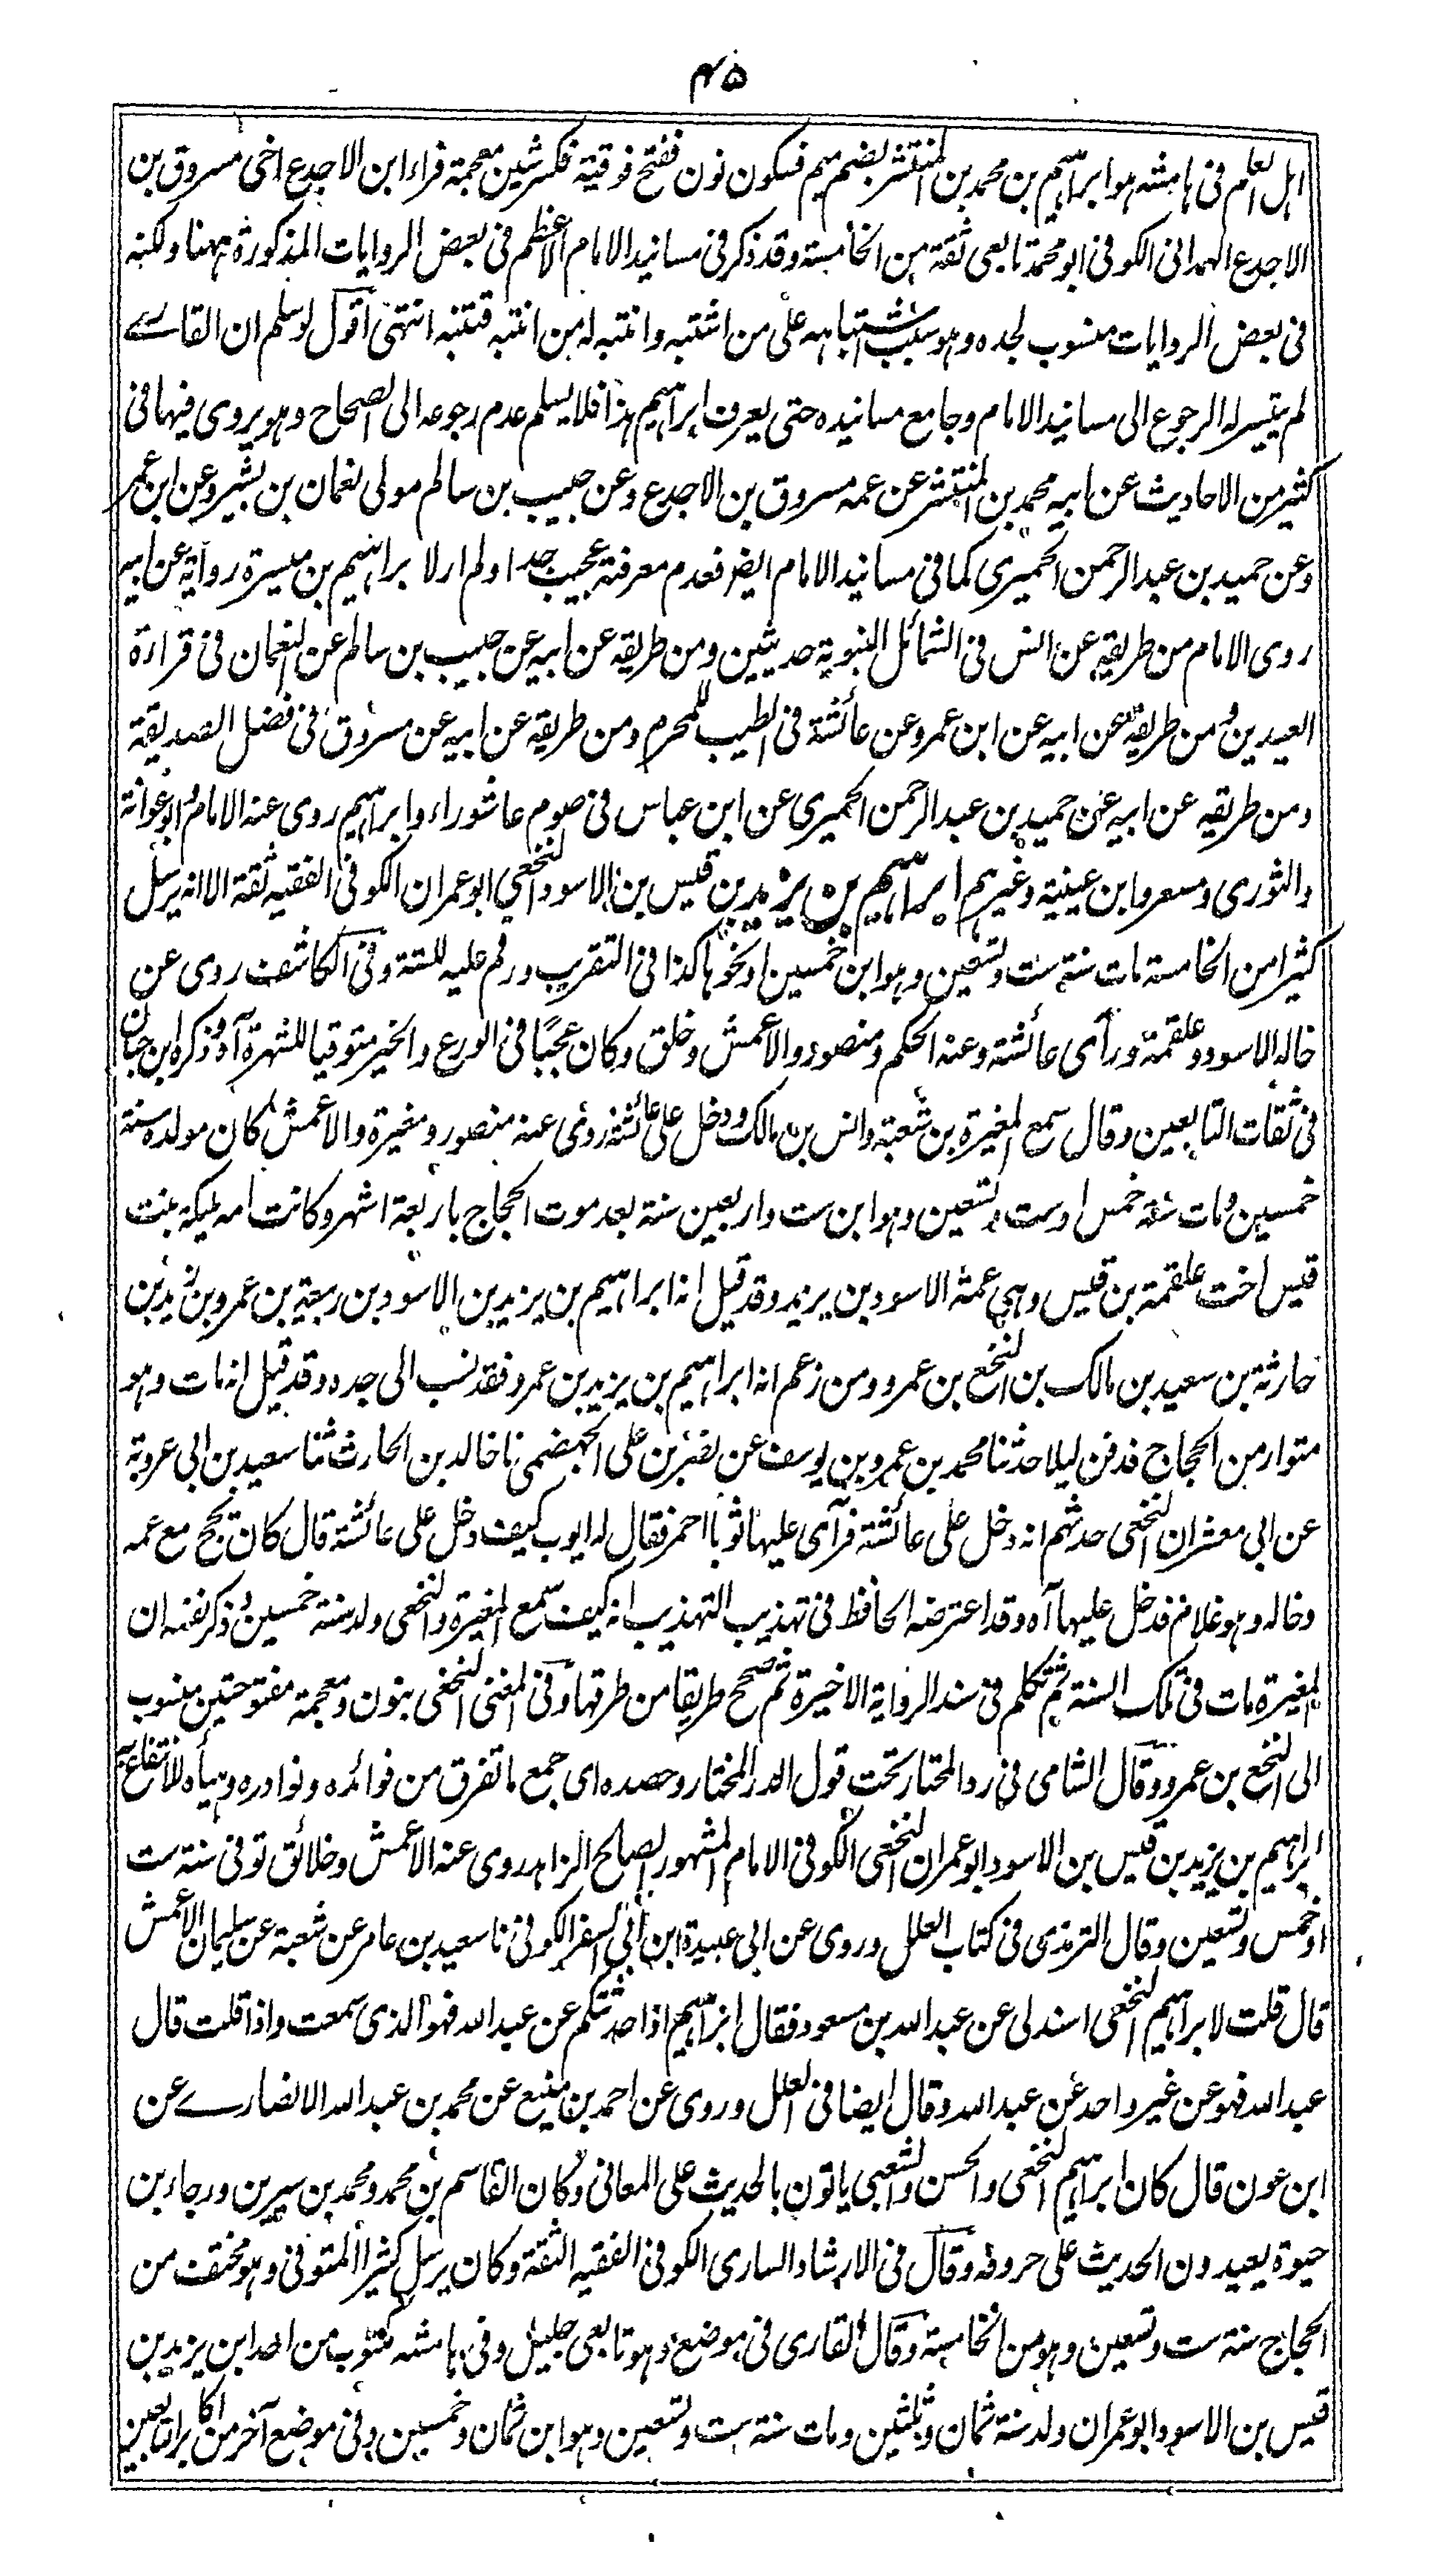 ۴۵
اہل العلم فی ہامشہ ہو ابراہیم بن محمد بن المنتشر بضم میم فسکون نون ففتح فوقیۃ فکسر شین معجمۃ فراء ابن الاجدع اخی مسروق بن
الاجدع الہمدانی الکوفی ابو محمد تابعی ثقۃ من الخامسۃ وقد ذکر فی مسانید الامام الاعظم فی بعض الروایات المذکورۃ ہہنا ولکنہ
فی بعض الروایات منسوب لجدہ وہو سبب اشتباہہ علی من اشتبہ وانتبہ لہ من انتبہ فتنبہ انتہی اقول لو سلم ان القاری
لم یتیسر لہ الرجوع الی مسانید الامام وجامع مسانیدہ حتی یعرف ابراہیم ہذا فلا یسلم عدم رجوعہ الی الصحاح وہو یروی فیہا فی
کثیر من الاحادیث عن ابیہ محمد بن المنتشر عن عمہ مسروق بن الاجدع وعن حبیب بن سالم مولی نعمان بن بشیر وعن ابن عمر
وعن حمید بن عبد الرحمن الحمیری کما فی مسانید الامام ایضر فعدم معرفتہ عجیب جدا ولم ار لابراہیم بن میسرۃ روایۃ عن ابیہ
روی الامام من طریقہ عن انس فی الشمائل النبویۃ حدیثین ومن طریقہ عن ابیہ عن حبیب بن سالم عن النعمان فی قراءۃ
العیدین ومن طریقہ عن ابیہ عن ابن عمر وعن عائشۃ فی الطیب للمحرم ومن طریقہ عن ابیہ عن مسروق فی فضل الصدیقۃ
ومن طریقہ عن ابیہ عن حمید بن عبد الرحمن الحمیری عن ابن عباس فی صوم عاشوراء وابراہیم روی عنہ الامام وابو عوانۃ
والثوری ومسعر وابن عیینۃ وغیرہم ابراہیم بن یزید بن قیس بن الاسود النخعی ابو عمران الکوفی الفقیہ ثقۃ الا انہ یرسل
کثیرا من الخامسۃ مات سنۃ ست وتسعین وہو ابن خمسین او نحوہا کذا فی التقریب ورقم علیہ للستۃ وفی الکاشف روی عن
خالہ الاسود وعلقمۃ ورأی عائشۃ وعنہ الحکم ومنصور والاعمش وخلق وکان عجبًا فی الورع والخیر متوقیا للشہرۃ آہ وذکرہ ابن حبان
فی ثقات التابعین وقال سمع المغیرۃ بن شعبۃ وانس بن مالک ودخل علی عائشۃ روی عنہ منصور ومغیرۃ والاعمش کان مولدہ سنۃ
خمسین ومات سنۃ خمس او ست وتسعین وہو ابن ست واربعین سنۃ بعد موت الحجاج باربعۃ اشہر وکانت امہ ملیکۃ بنت
قیس اخت علقمۃ بن قیس وہی عمۃ الاسود بن یزید وقد قیل انہ ابراہیم بن یزید بن الاسود بن ربیعۃ بن عمرو بن یزید بن
حارثۃ بن سعید بن مالک بن النخع بن عمرو ومن زعم انہ ابراہیم بن یزید بن عمرو فقد نسب الی جدہ وقد قیل انہ مات وہو
متوار من الحجاج فدفن لیلا حدثنا محمد بن عمرو بن یوسف عن نصر بن علی الجہضمی نا خالد بن الحارث ثنا سعید بن ابی عروبۃ
عن ابی معشر ان النخعی حدثہم انہ دخل علی عائشۃ فرآی علیہا ثوبا احمر فقال لہ ایوب کیف دخل علی عائشۃ قال کان یحج مع عمہ
وخالہ وہو غلام فدخل علیہا آہ وقد اعترضہ الحافظ فی تہذیب التہذیب انہ کیف سمع المغیرۃ والنخعی ولد سنۃ خمسین وذکر نفسہ ان
المغیرۃ مات فی تلک السنۃ ثم تکلم فی سند الروایۃ الاخیرۃ ثم صحح طریقا من طرقہا وفی المغنی النخعی بنون ومعجمۃ مفتوحتین منسوب
الی النخع بن عمرو وقال الشامی فی رد المحتار تحت قول الدر المختار وحصدہ ای جمع ما تفرق من فوائدہ ونوادرہ وہیأہ للانتفاع بہ
ابراہیم بن یزید بن قیس بن الاسود ابو عمران النخعی الکوفی الامام المشہور الصالح الزاہد روی عنہ الاعمش وخلائق توفی سنۃ ست
او خمس وتسعین وقال الترمذی فی کتاب العلل وروی عن ابی عبیدۃ ابن ابی السفر الکوفی نا سعید بن عامر عن شعبۃ عن سلیمان الاعمش
قال قلت لابراہیم النخعی اسند لی عن عبد اللہ بن مسعود فقال ابراہیم اذا حدثتکم عن عبد اللہ فہو الذی سمعت واذا قلت قال
عبد اللہ فہو عن غیر واحد عن عبد اللہ وقال ایضا فی العلل وروی عن احمد بن منیع عن محمد بن عبد اللہ الانصاری عن
ابن عون قال کان ابراہیم النخعی والحسن والشعبی یاتون بالحدیث علی المعانی وکان القاسم بن محمد ومحمد بن سیرین ورجاء بن
حیوۃ یعیدون الحدیث علی حروفہ وقال فی الارشاد الساری الکوفی الفقیہ الثقۃ وکان یرسل کثیرا المتوفی وہو مختف من
الحجاج سنۃ ست وتسعین وہو من الخامسۃ وقال القاری فی موضع وہو تابعی جلیل وفی ہامشہ مکتوب من احد ابن یزید بن
قیس بن الاسود ابو عمران ولد سنۃ ثمان وثلثین ومات سنۃ ست وتسعین وہو ابن ثمان وخمسین وفی موضع آخر من اکابر التابعین